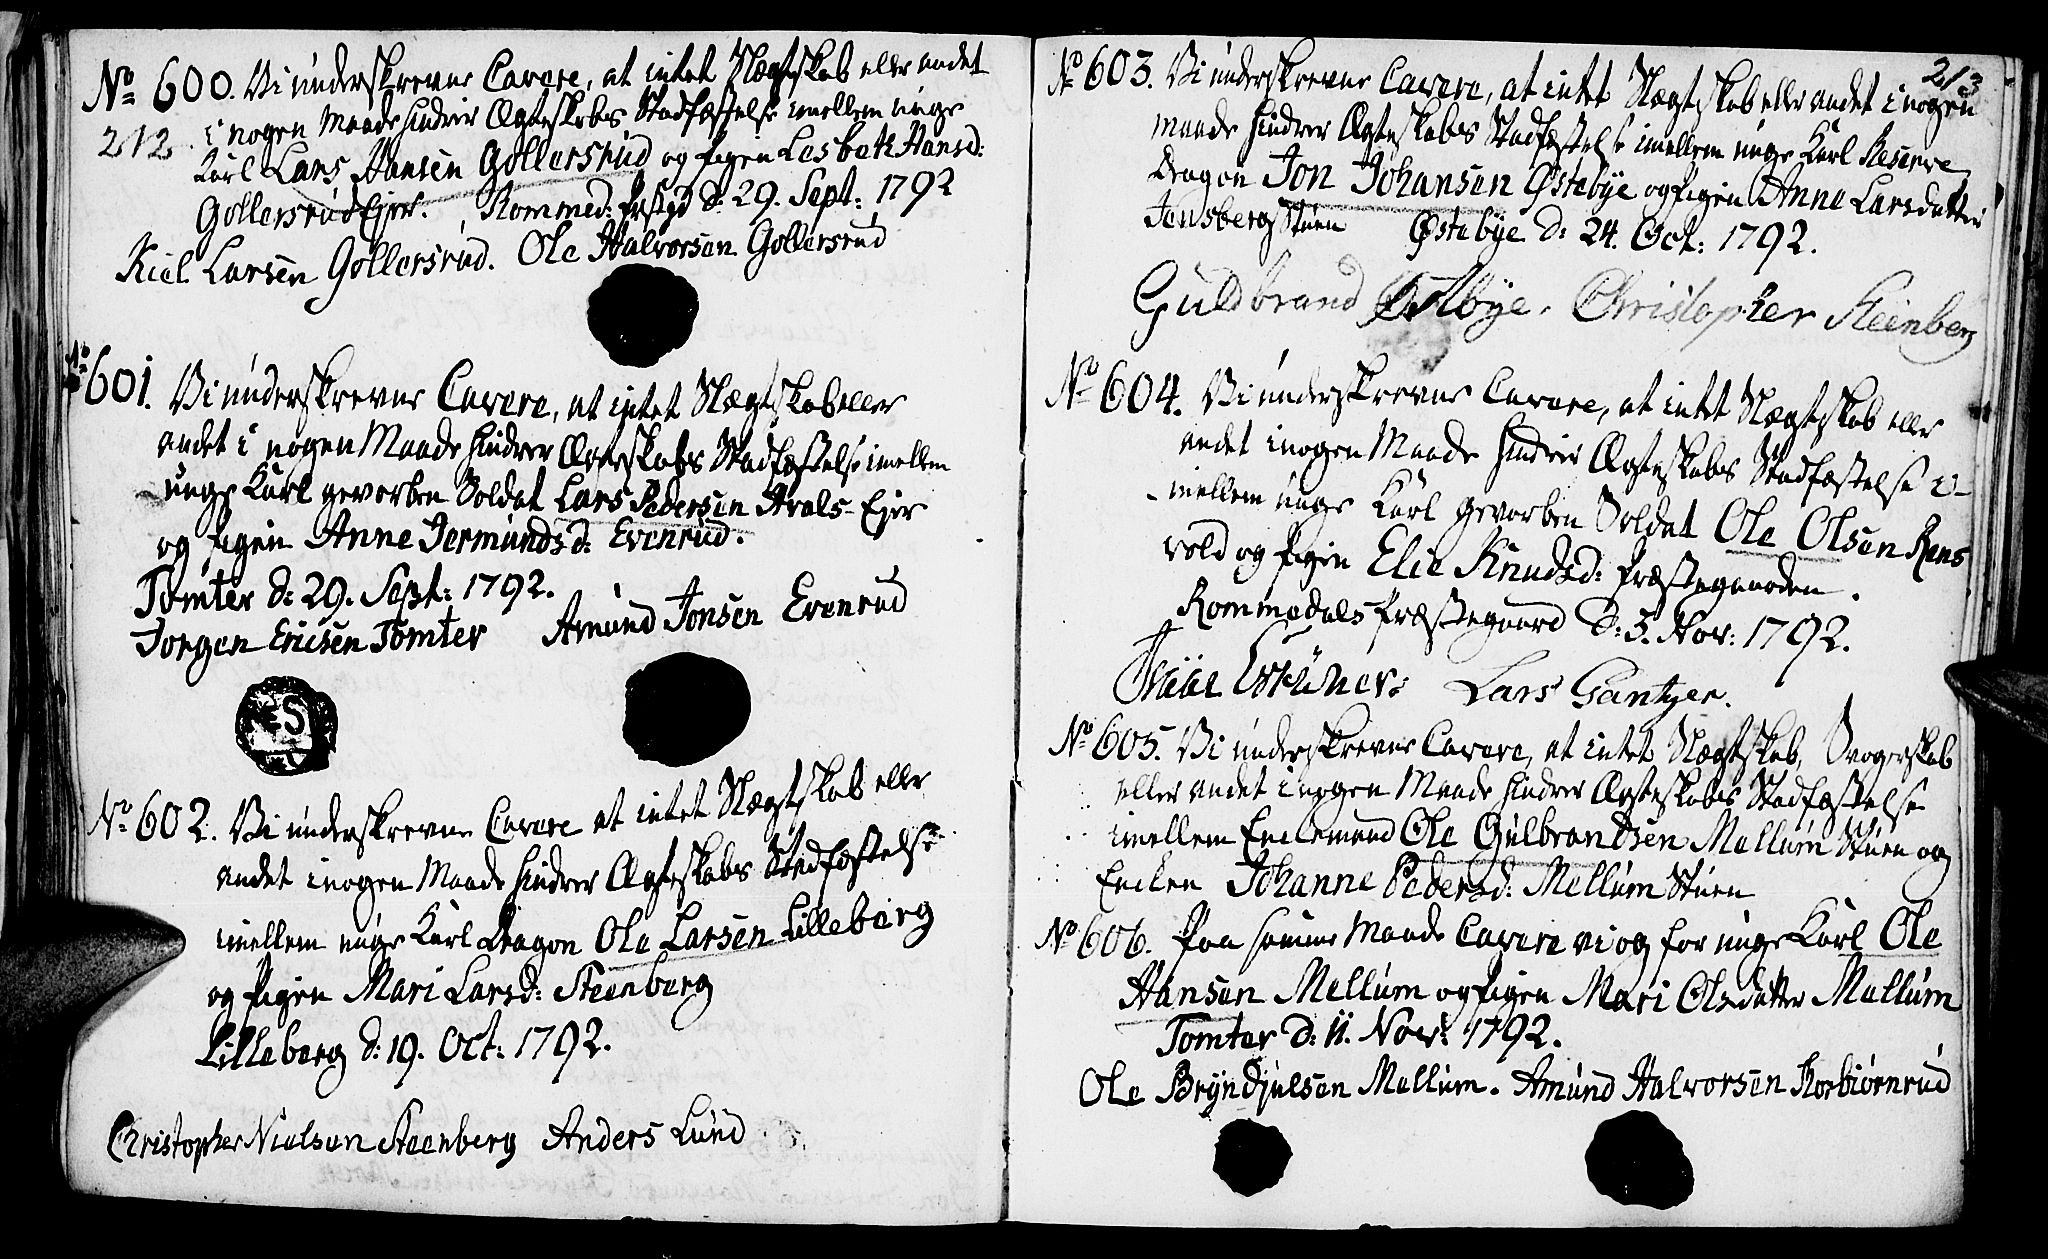 No 600. Vi underskrevne Cavere, at intet Slægtskab eller andet
212. i nogen Maade hindrer Ægteskabs Stadfæstelse imellem unge
Karl Lars Hansen Gollersrud og Pigen Lesbeth Hansd:
Gollersrud Ejer. Rommed: Prstgd d: 29. Sept: 1792
Kiel Larsen Gollersrud. Ole Halvorsen Gollersrud
No 601. Vi underskrevne Cavere, at intet Slægtskab eller
andet i nogen Maade hindrer Ægteskabs Stadfæstelse imellem
unge Karl gevorben Soldat Lars Pedersen Arals-Ejer
og Pigen Anne Jermundsd: Evenrud.
Tomter d: 29. Sept: 1792.
Jorgen Ericsen Tomter Amund Jonsen Evenrud
No 602. Vi underskrevne Cavere at intet Slægtskab eller
andet i nogen Maade hindrer Ægteskabs Stadfæstelse
imellem unge Karl Dragon Ole Larsen Lilleberg
og Pigen Mari Larsd: Steenberg
Lilleberg d: 19. Oct: 1792.
Christopher Nielsen Steenberg Anders Lund
213
No 603. Vi underskrevne Cavere, at intet Slægtskab eller andet i nogen
Maade hindrer Ægteskabs Stadfæstelse imellem unge Karl Reserve
Dragon Jon Johansen Østebye og Pigen Anne Larsdatter
Jensberg Stuen Østebye d: 24. Oct: 1792.
Guldbrand Østbye. Christopher Steinberg
No 604. Vi underskrevne Cavere, at intet Slægtskab eller
andet i nogen Maade hindrer Ægteskabs Stadfæstelse i-
mellem unge Karl gevorben Soldat Ole Olsen Rens
vold og Pigen Elie Knudsd: Præstegaarden.
Rommedals Præstegaard d: 3. Nov: 1792.
Lars Gantzer.
No 605. Vi underskrevne Cavere, at intet Slægtskab, Svogerskab
eller andet i nogen Maade hindrer Ægteskabs Stadfæstelse
imellem Enckemand Ole Gulbrandsen Mellum Stuen og
Encken Johanne Pedersd: Mellum Stuen
No 606. Paa samme Maade Cavere vi og for unge Karl Ole
Hansen Mellum og Pigen Mari Olsdatter Mellum
Tomter d: 11. Nov: 1792.
Ole Bryndjulsen Mellum. Amund Halvorsen Korbiørnrud